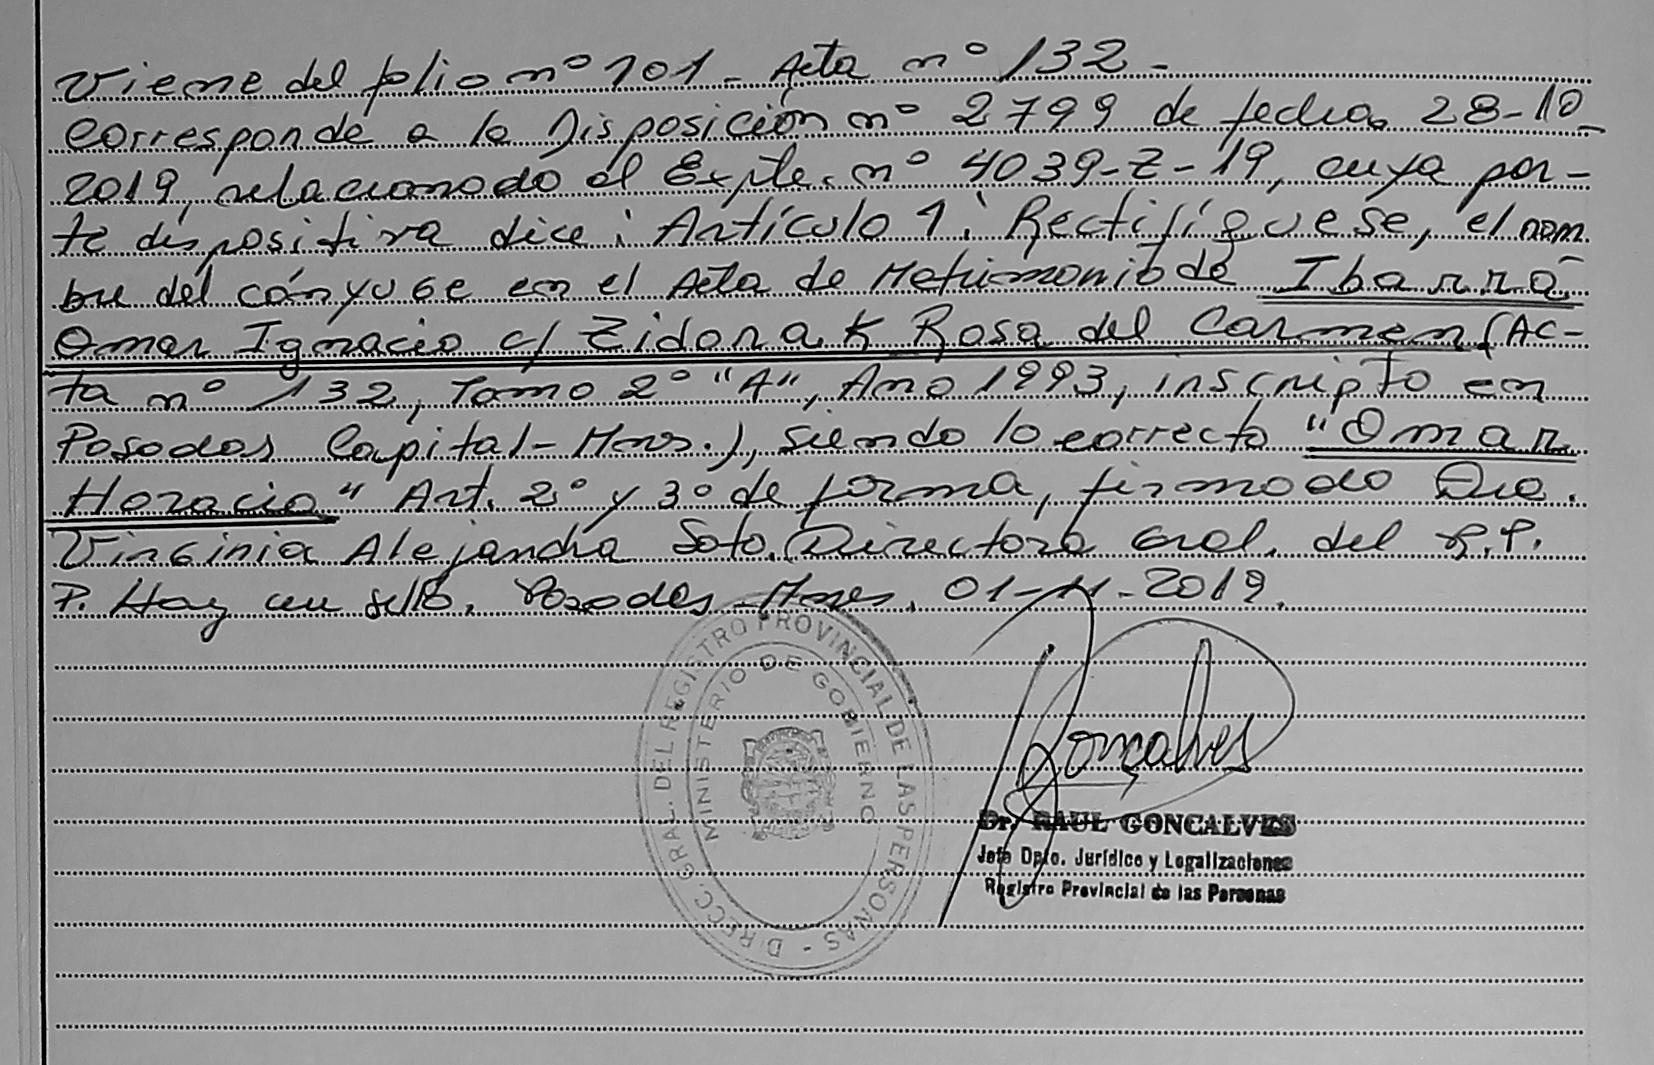 Viene del folio nº 101 - Acta nº 132 -
Corresponde a la Disposición nº 2799 de fecha 28-10-
2019, relacionado al Expte. nº 4039-Z-19, cuya par-
te dispositiva dice: Artículo 1: Rectifíquese, el nom-
bre del cónyuge en el Acta de Matrimonio de Ibarra
Omar Ignacio c/ Zidorak Rosa del Carmen (Ac-
ta nº 132, Tomo 2º "A", Año 1993, inscripto en
Posadas Capital-Mnes.), siendo lo correcto "Omar
Horacio" Art. 2º y 3º de forma, firmado Dra.
Virginia Alejandra Soto. Directora Gral. del R.P.
P. Hay un sello. Posadas-Mnes, 01-11-2019.
DIRECC. GRAL. DEL REGISTRO PROVINCIAL DE LAS PERSONAS -
MINISTERIO DE GOBIERNO
Gonçalves
Dr. RAUL GONCALVES
Jefe Dpto. Jurídico y Legalizaciones
Registro Provincial de las Personas